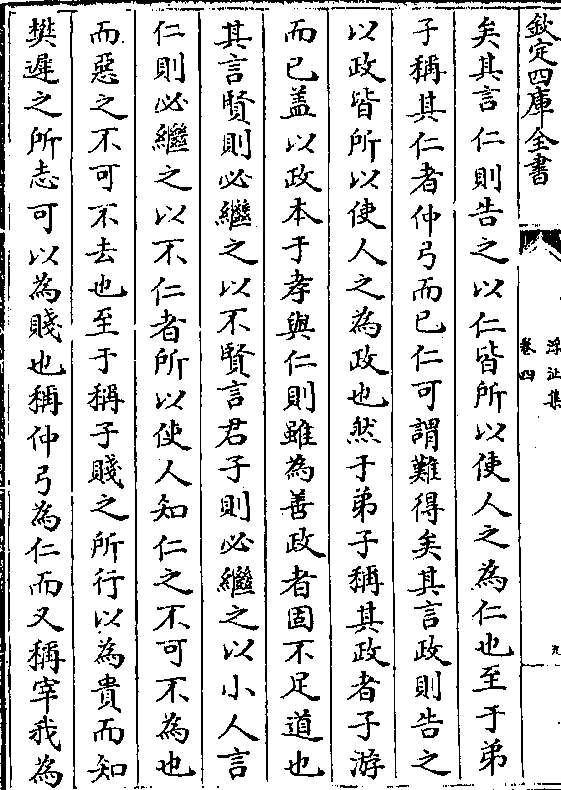 欽定四庫全書
浮沚集
卷四
九
矣其言仁則告之以仁皆所以使人之為仁也至于弟
子稱其仁者仲弓而已仁可謂難得矣其言政則告之
以政皆所以使人之為政也然于弟子稱其政者子游
而已盖以政本于孝與仁則雖為善政者固不足道也
其言賢則必繼之以不賢言君子則必繼之以小人言
仁則必繼之以不仁者所以使人知仁之不可不為也
而惡之不可不去也至于稱子賤之所行以為貴而知
樊遲之所志可以為賤也稱仲弓為仁而又稱宰我為